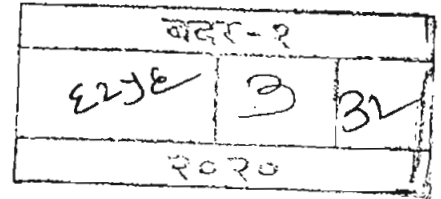 बदर-१
६२५६ ३ ३२
२०२०